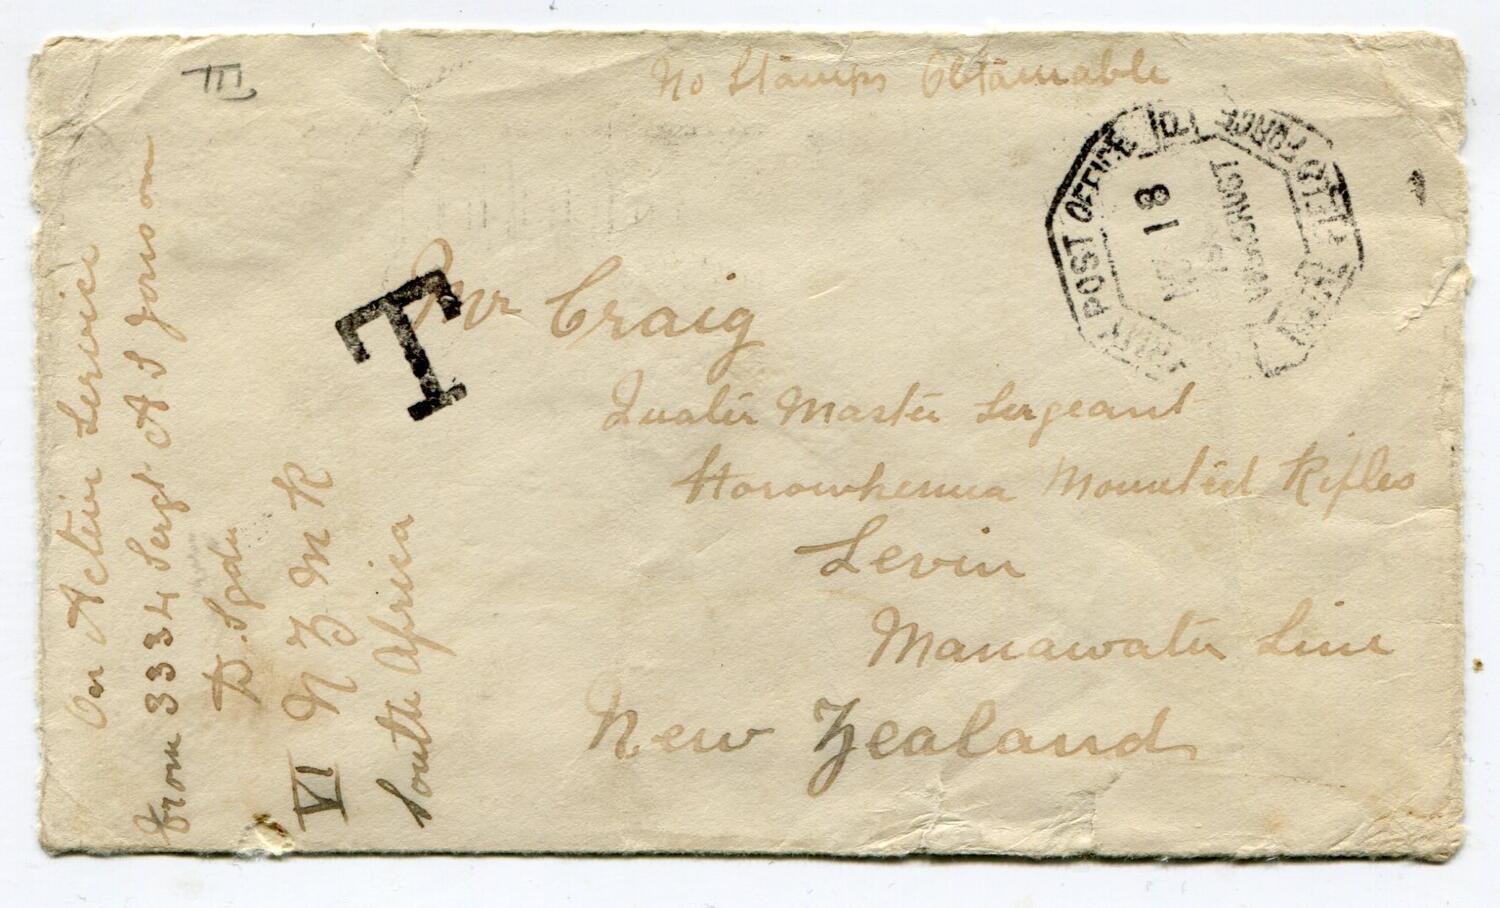 III
No Stamps Obtainable
ARMY POST OFFICE
TO
FIELD FORCE
18
T
Mr Craig
Quater Master Sergeant
Horowhenua Mounted Rifles
Levin
Manawatu Line
New Zealand
On Active Service
from 3334 Sergt A S
D. Sqdn
VI N Z M R
South Africa